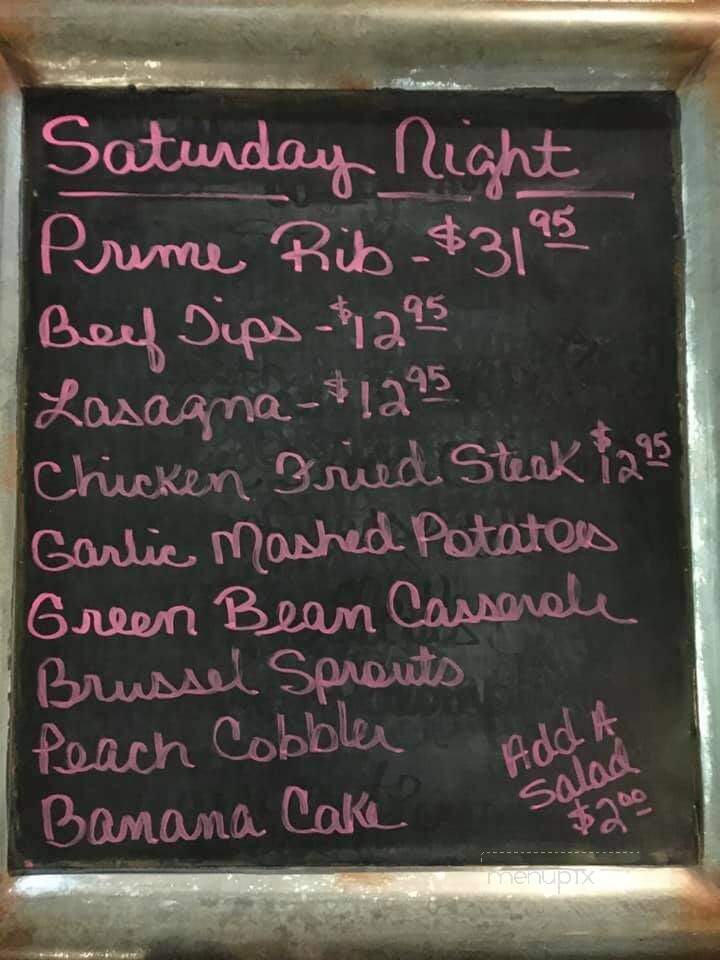 Saturday Night
Prime Rib - $31 95
Beef Tips - $12 95
Lasagna - $12 95
Chicken Fried Steak $12 95
Garlic Mashed Potatoes
Green Bean Casserole
Brussel Sprouts
Peach Cobbler
Banana Cake
Add A
Salad
$2 00
menupix